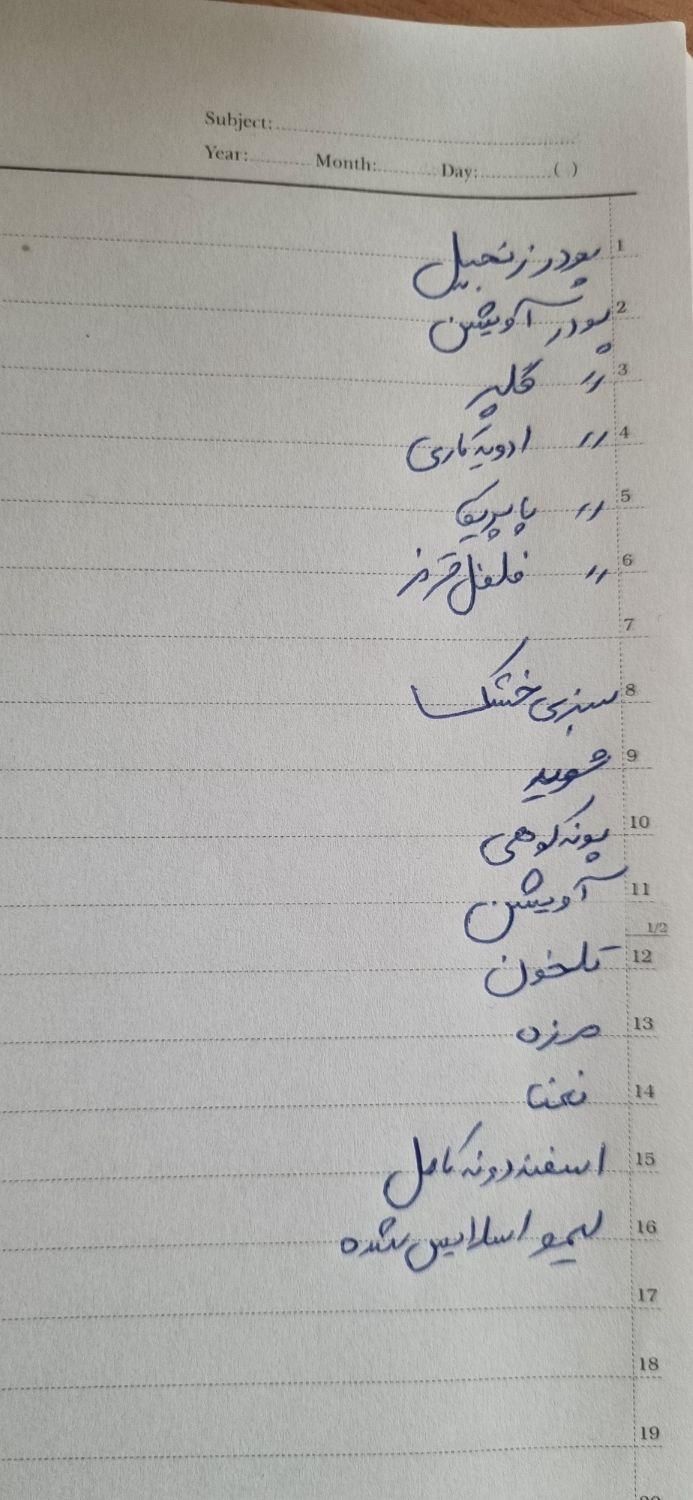 Subject:
Year: Month: Day: ( )
1 پودر زنجبیل
2 پودر آویشن
3 〃 گلپر
4 〃 ادویه کاری
5 〃 پاپریکا
6 〃 فلفل قرمز
7
8 سبزی خشک
9 شوید
10 پونه کوهی
11 آویشن
1/2
12 تلخون
13 مرزه
14 نعنا
15 اسفند دونه کامل
16 لیمو اسلایس شده
17
18
19
20